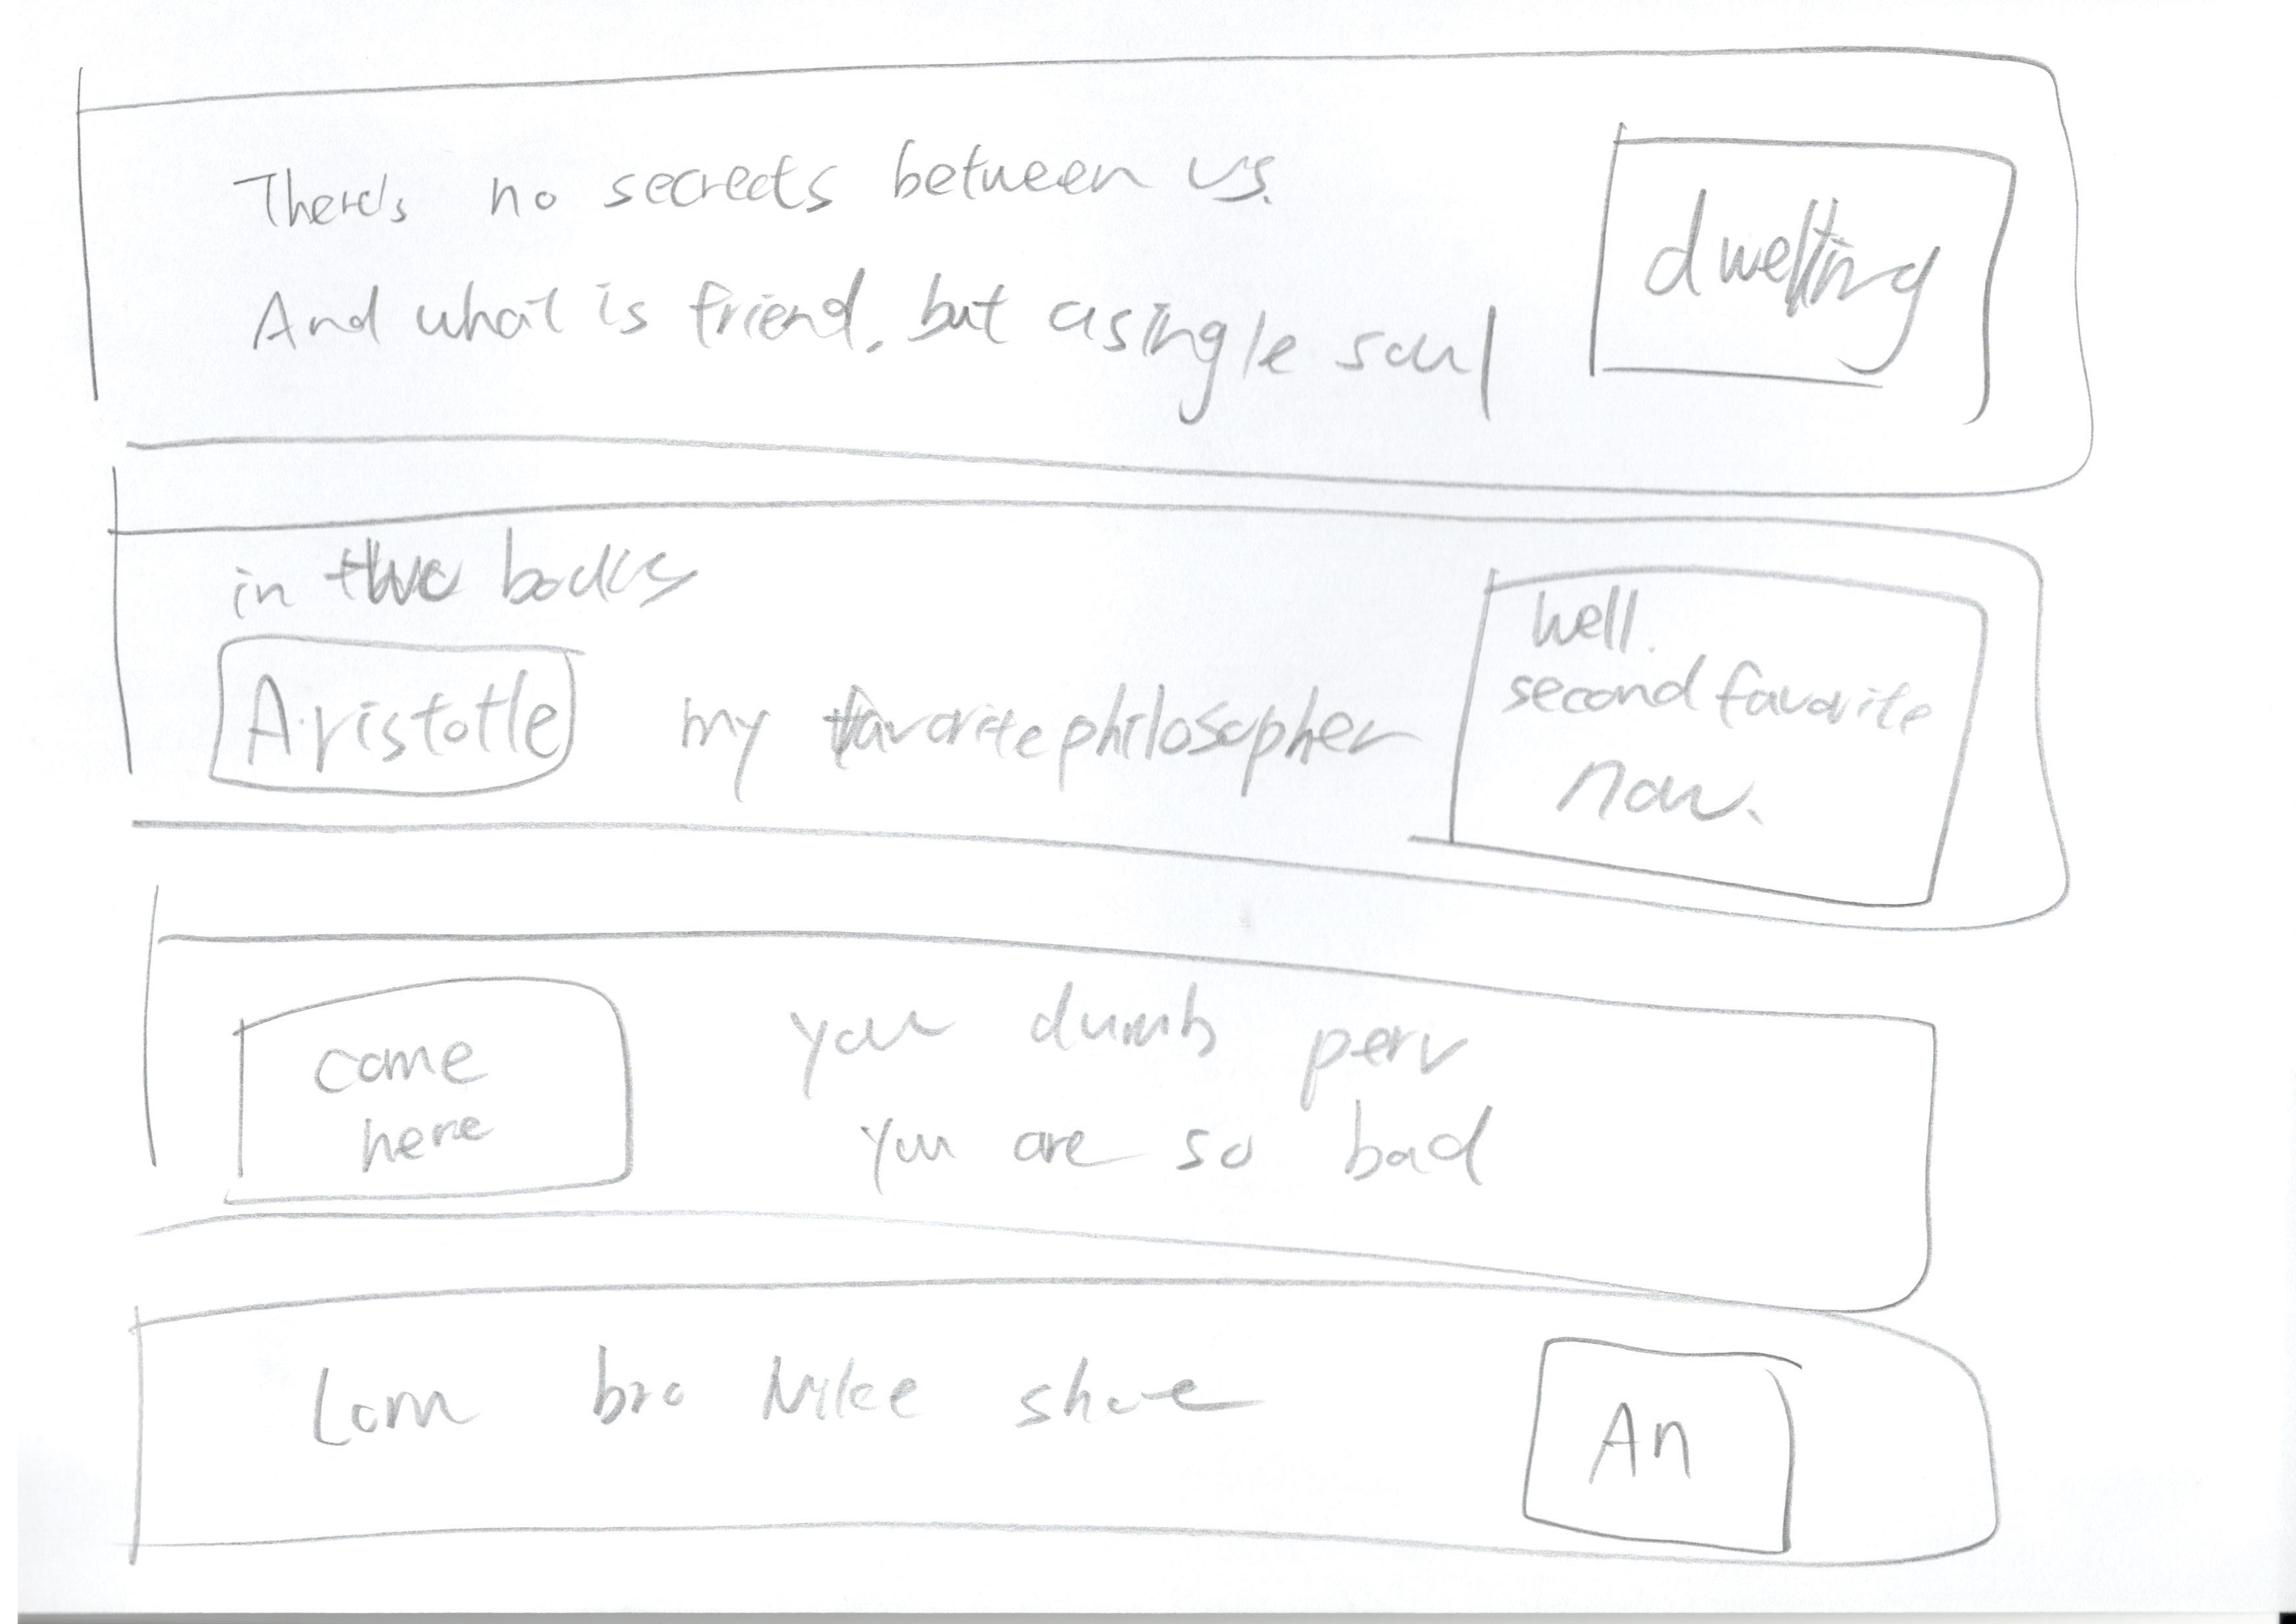 There's no secrects between us.
And what is friend, but a single soul
dwelling
in two bodies
Aristotle my favorite philosopher
well.
second favorite
now.
come
here
you dumb perv
you are so bad
bro Nike shoe
An